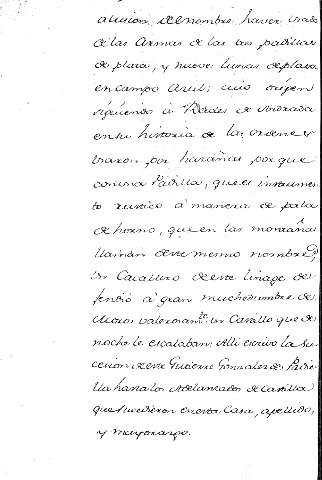 alusion, de renombre, haver usado
de las Armas de las tres padillas
de plata, y nueve lunas de plata
en campo Azul; cuio origen
siguiendo á Rades de Andrada
en su historia de las ordenes
usaron, por hazañas, porque
con una Padilla, que es instrumen
to rustico á manera de pala
de horno, que en las montañas
llaman deste mesmo nombre
un Cavallero deste linage de
fendió á gran muchedumbre de
Moros valerosamte. un Castillo que de
noche le escalaban. Alli escrivo la su
cesion deste Gutierre Gonzales de Padi
lla hasta los Adelantados de Castilla
que sucedieron en esta Casa, apellido,
y mayorazgo.